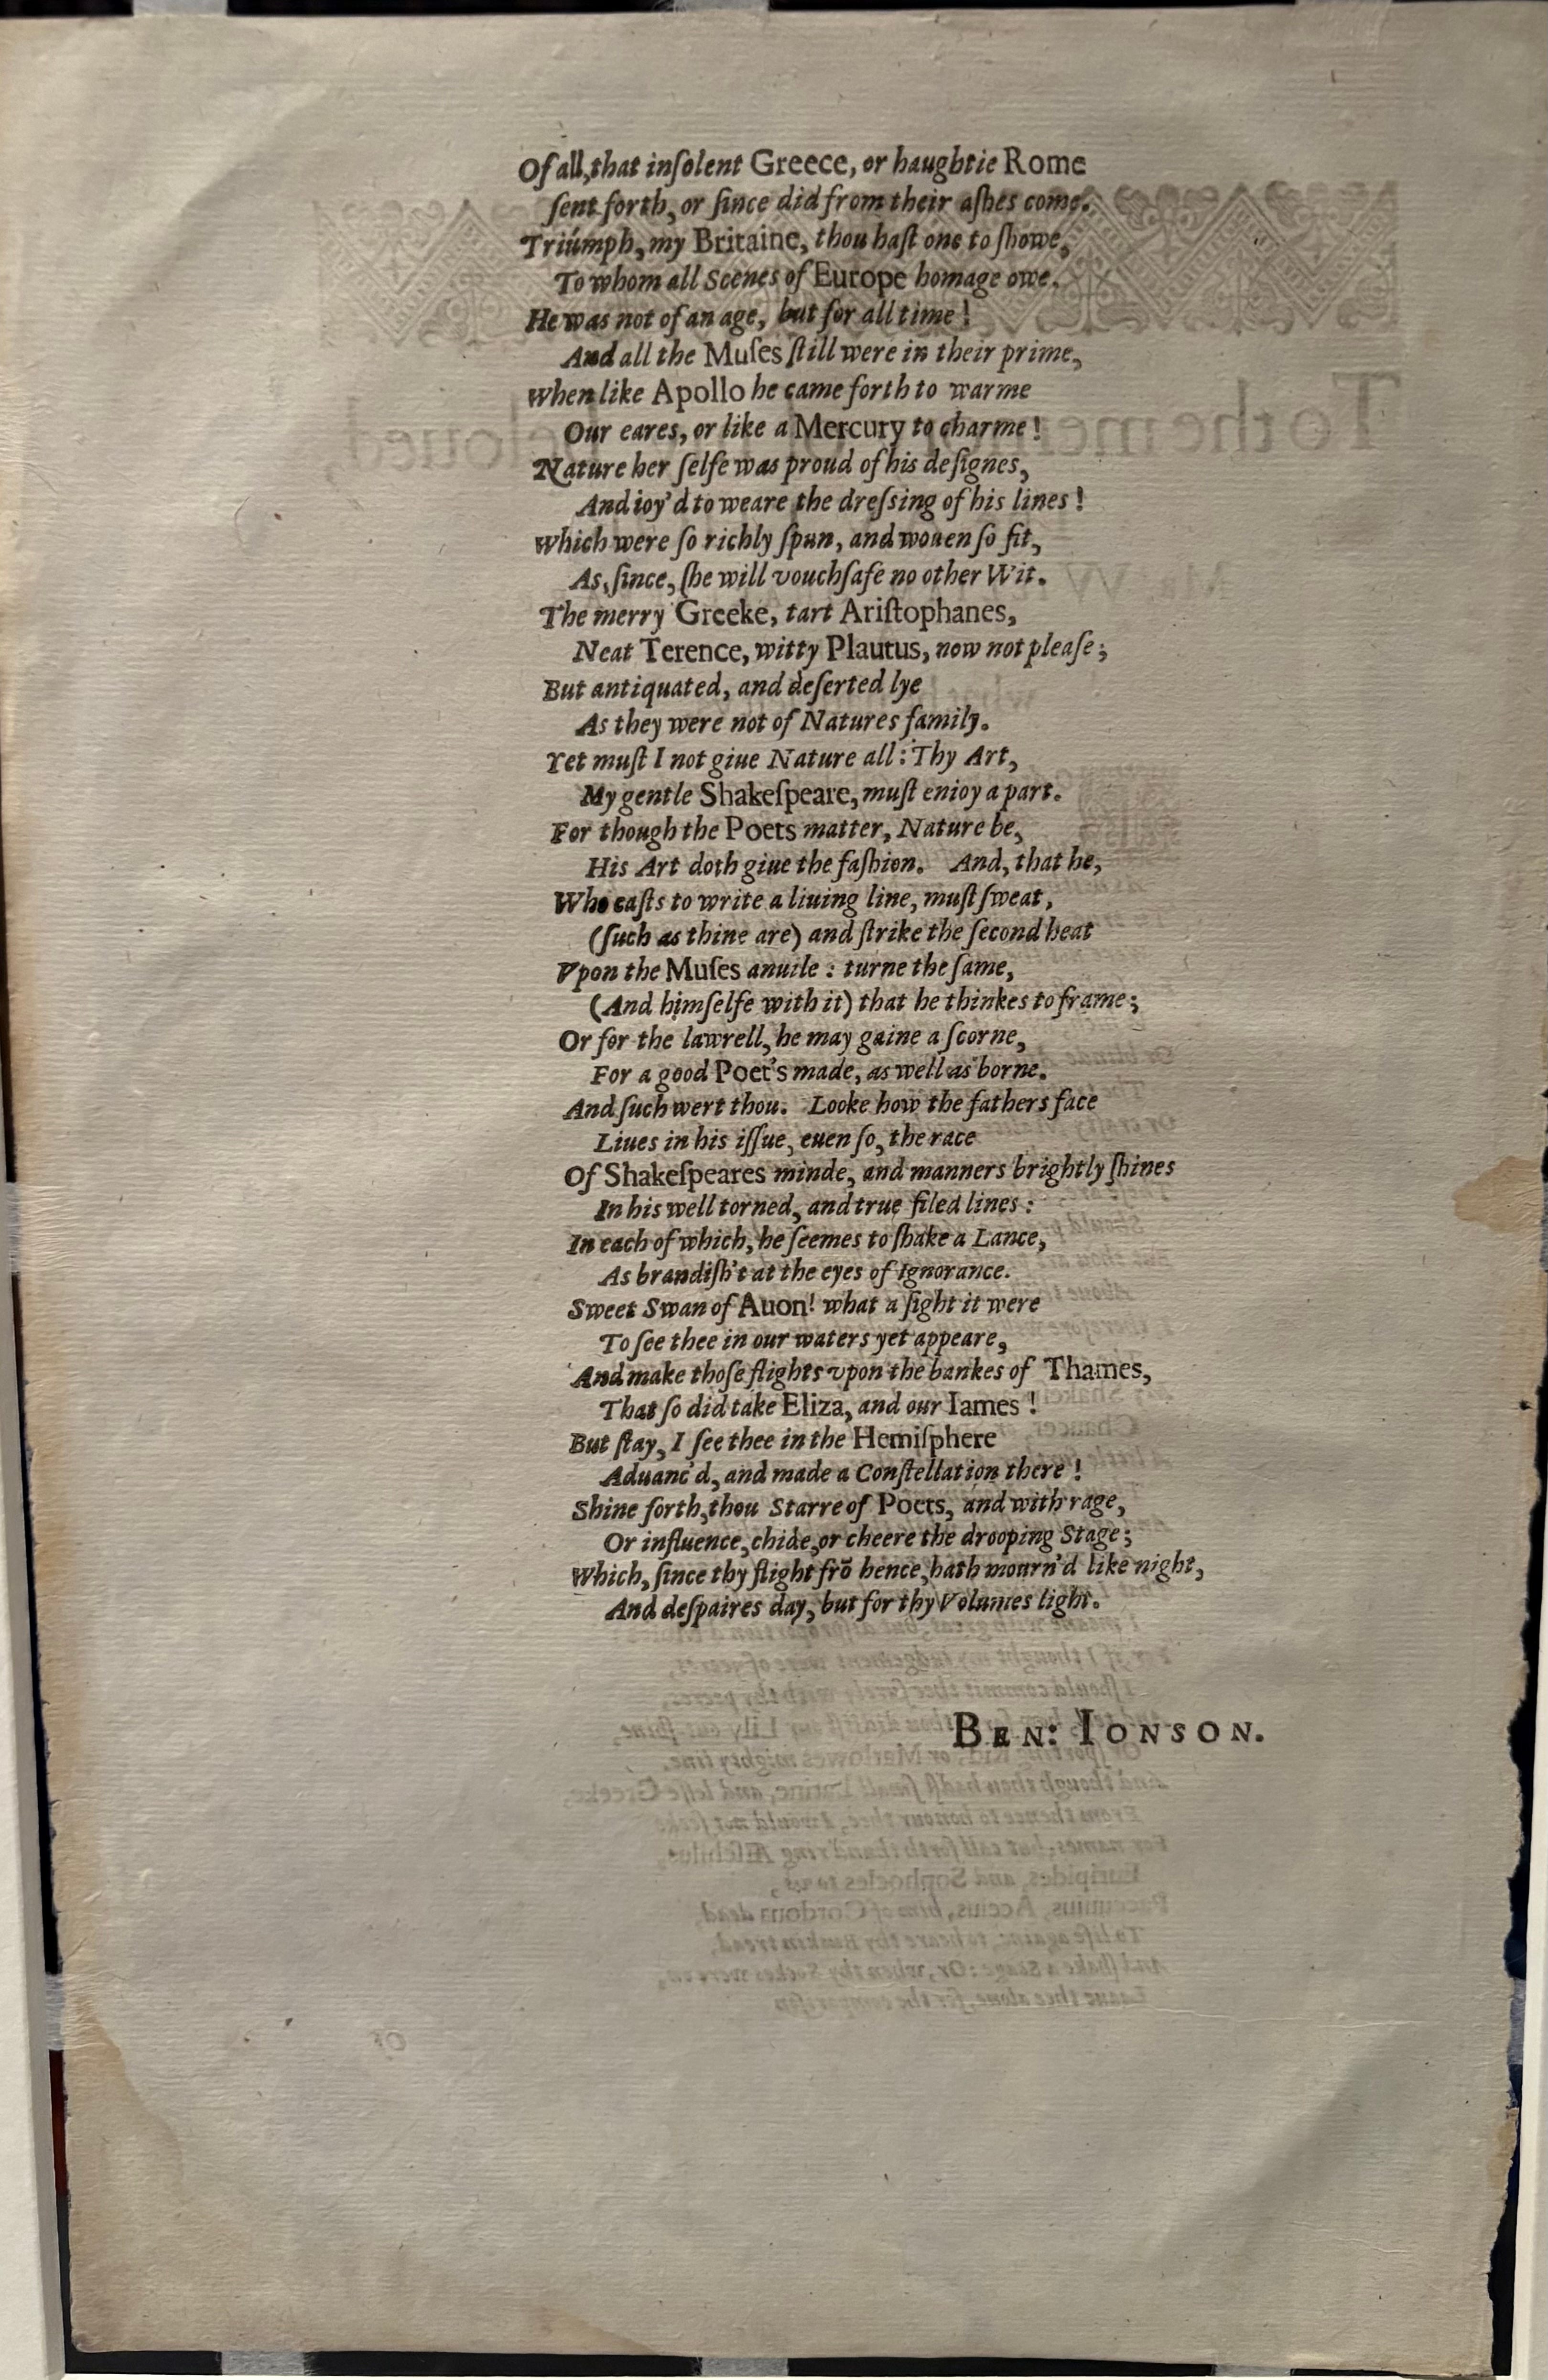 Of all, that inſolent Greece, or haughtie Rome
ſent forth, or ſince did from their aſhes come.
Triúmph, my Britaine, thou haſt one to ſhowe,
To whom all Scenes of Europe homage owe.
He was not of an age, but for all time!
And all the Muſes ſtill were in their prime,
When like Apollo he came forth to warme
Our eares, or like a Mercury to charme!
Nature her ſelfe was proud of his deſignes,
And ioy'd to weare the dreſsing of his lines!
Which were ſo richly ſpun, and wouen ſo fit,
As, ſince, ſhe will vouchſafe no other Wit.
The merry Greeke, tart Ariſtophanes,
Neat Terence, witty Plautus, now not pleaſe;
But antiquated, and deſerted lye
As they were not of Natures family.
Yet muſt I not giue Nature all: Thy Art,
My gentle Shakeſpeare, muſt enioy a part.
For though the Poets matter, Nature be,
His Art doth giue the faſhion. And, that he,
Who caſts to write a liuing line, muſt ſweat,
(ſuch as thine are) and ſtrike the ſecond heat
Vpon the Muſes anuile: turne the ſame,
(And himſelfe with it) that he thinkes to frame;
Or for the lawrell, he may gaine a ſcorne,
For a good Poet's made, as well as borne.
And ſuch wert thou. Looke how the fathers face
Liues in his iſſue, euen ſo, the race
Of Shakeſpeares minde, and manners brightly ſhines
In his well torned, and true filed lines:
In each of which, he ſeemes to ſhake a Lance,
As brandiſh't at the eyes of Ignorance.
Sweet Swan of Auon! what a ſight it were
To ſee thee in our waters yet appeare,
And make thoſe flights vpon the bankes of Thames,
That ſo did take Eliza, and our Iames!
But ſtay, I ſee thee in the Hemiſphere
Aduanc'd, and made a Conſtellation there!
Shine forth, thou Starre of Poets, and with rage,
Or influence, chide, or cheere the drooping Stage;
Which, ſince thy flight frō hence, hath mourn'd like night,
And deſpaires day, but for thy Volumes light.
BEN: IONSON.